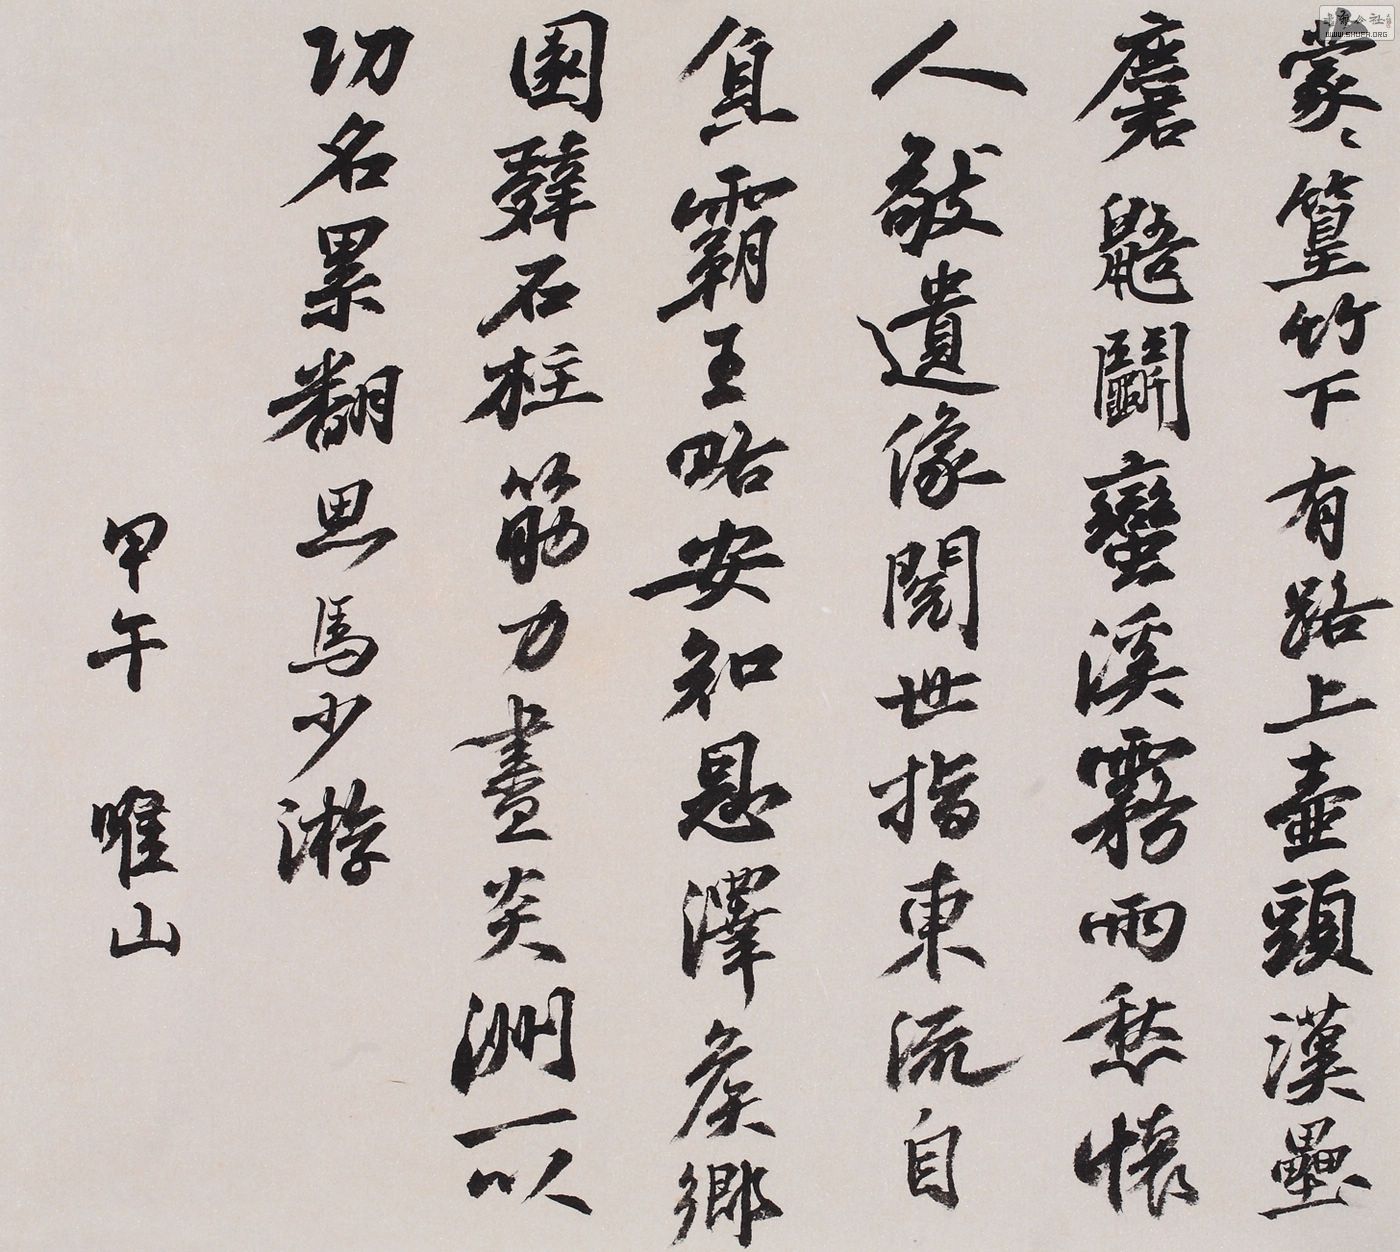 蒙〻篁竹下有路上壺頭漢壘
麏鼯鬭蠻溪霧雨愁懷
人敬遺像閱世指東流自
負霸王略安知恩澤侯鄉
園辭石柱筋力盡炎洲一以
功名累翻思馬少游
甲午 唯山
WWW.SHUFA.ORG